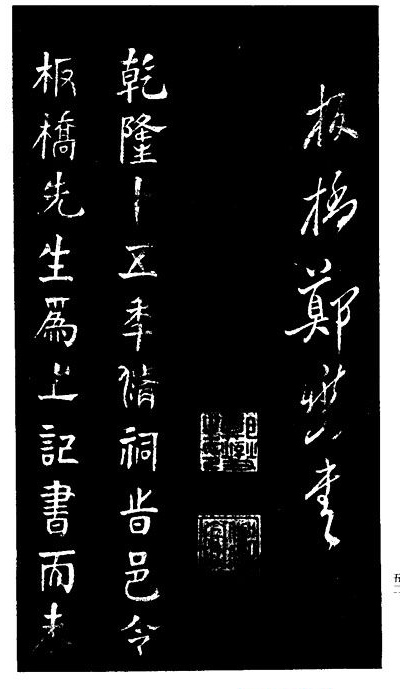 板橋鄭燮書
乾隆十五秊脩祠旹邑令
板橋先生爲之記書而未